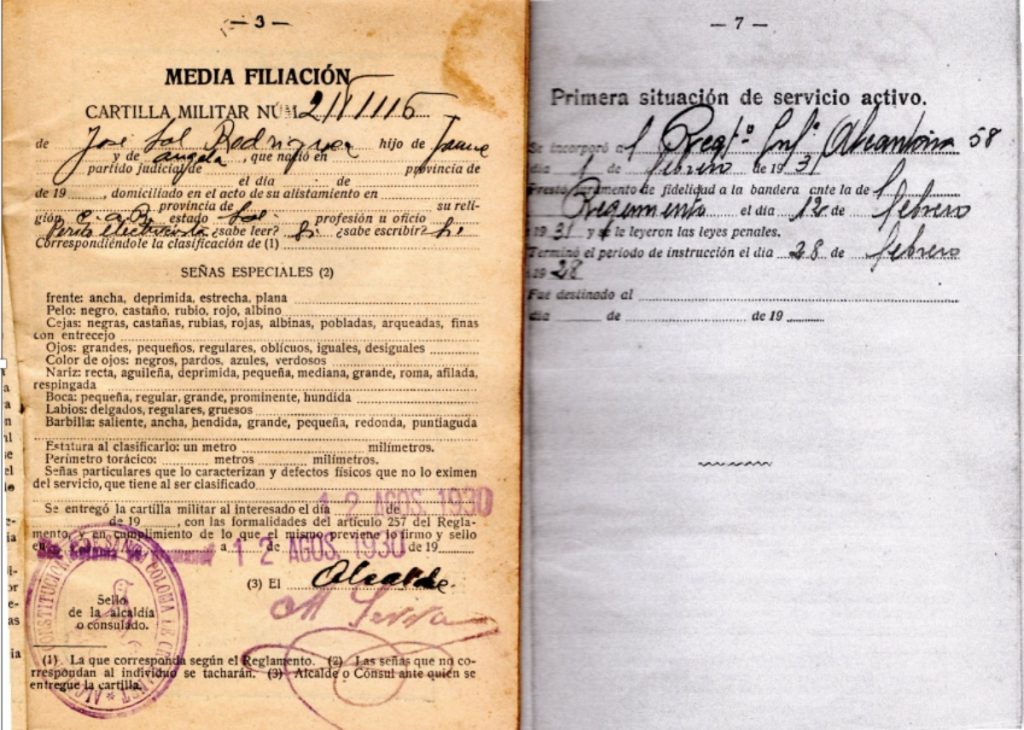 — 3 —
MEDIA FILIACIÓN
CARTILLA MILITAR NÚM
de José Sol Rodriguez hijo de Jaime
y de angela, que nació en
partido judicial de provincia de
el día de
de 19, domiciliado en el acto de su alistamiento en
provincia de su reli-
gión c. a. R. estado Sol profesión u oficio
Perito electricista ¿sabe leer? Si ¿sabe escribir? Si
Correspondiéndole la clasificación de (1)
SEÑAS ESPECIALES (2)
frente: ancha, deprimida, estrecha, plana
Pelo: negro, castaño, rubio, rojo, albino
Cejas: negras, castañas, rubias, rojas, albinas, pobladas, arqueadas, finas
con entrecejo
Ojos: grandes, pequeños, regulares, oblícuos, iguales, desiguales
Color de ojos: negros, pardos, azules, verdosos
Nariz: recta, aguileña, deprimida, pequeña, mediana, grande, roma, afilada,
respingada
Boca: pequeña, regular, grande, prominente, hundida
Labios: delgados, regulares, gruesos
Barbilla: saliente, ancha, hendida, grande, pequeña, redonda, puntiaguda
Estatura al clasificarlo: un metro milímetros.
Perímetro torácico: metros milímetros.
Señas particulares que lo caracterizan y defectos físicos que no lo eximen
del servicio, que tiene al ser clasificado
Se entregó la cartilla militar al interesado el día de
12 AGOS. 1930
de 19, con las formalidades del artículo 257 del Regla-
mento, y en cumplimiento de lo que el mismo previene lo firmo y sello
en a de de 19
12 AGOS. 1930
(3) El Alcalde.
Sello
de la alcaldía
o consulado.
(1) La que corresponda según el Reglamento. (2) Las señas que no co-
rrespondan al individuo se tacharán. (3) Alcalde o Cónsul ante quien se
entregue la cartilla.
— 7 —
Primera situación de servicio activo.
Se incorporó al Regtº Infª 58
día 1 de febrero de 1931
Prestó juramento de fidelidad a la bandera ante la del
Regimiento el día 12 de febrero
1931 y se le leyeron las leyes penales.
Terminó el periodo de instrucción el día 28 de febrero
1928
Fue destinado al
día de de 19